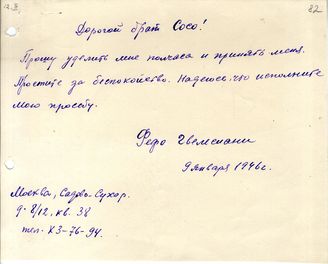 82
Дорогой брат Сосо!
Прошу уделить мне полчаса и принять меня.
Простите за беспокойство. Надеюсь, что исполните
мою просьбу.
9 января 1946 г.
Москва, Садов-Сухар.
д. 8/12, кв. 38
тел. К3-76-94.